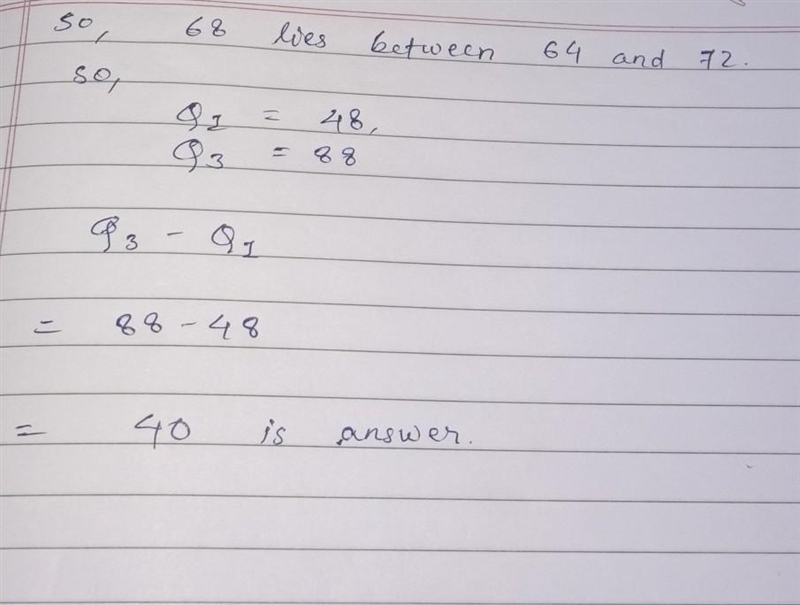 so, 68 lies between 64 and 72.
so,
Q1 = 48,
Q3 = 88
Q3 - Q1
= 88 - 48
= 40 is answer.